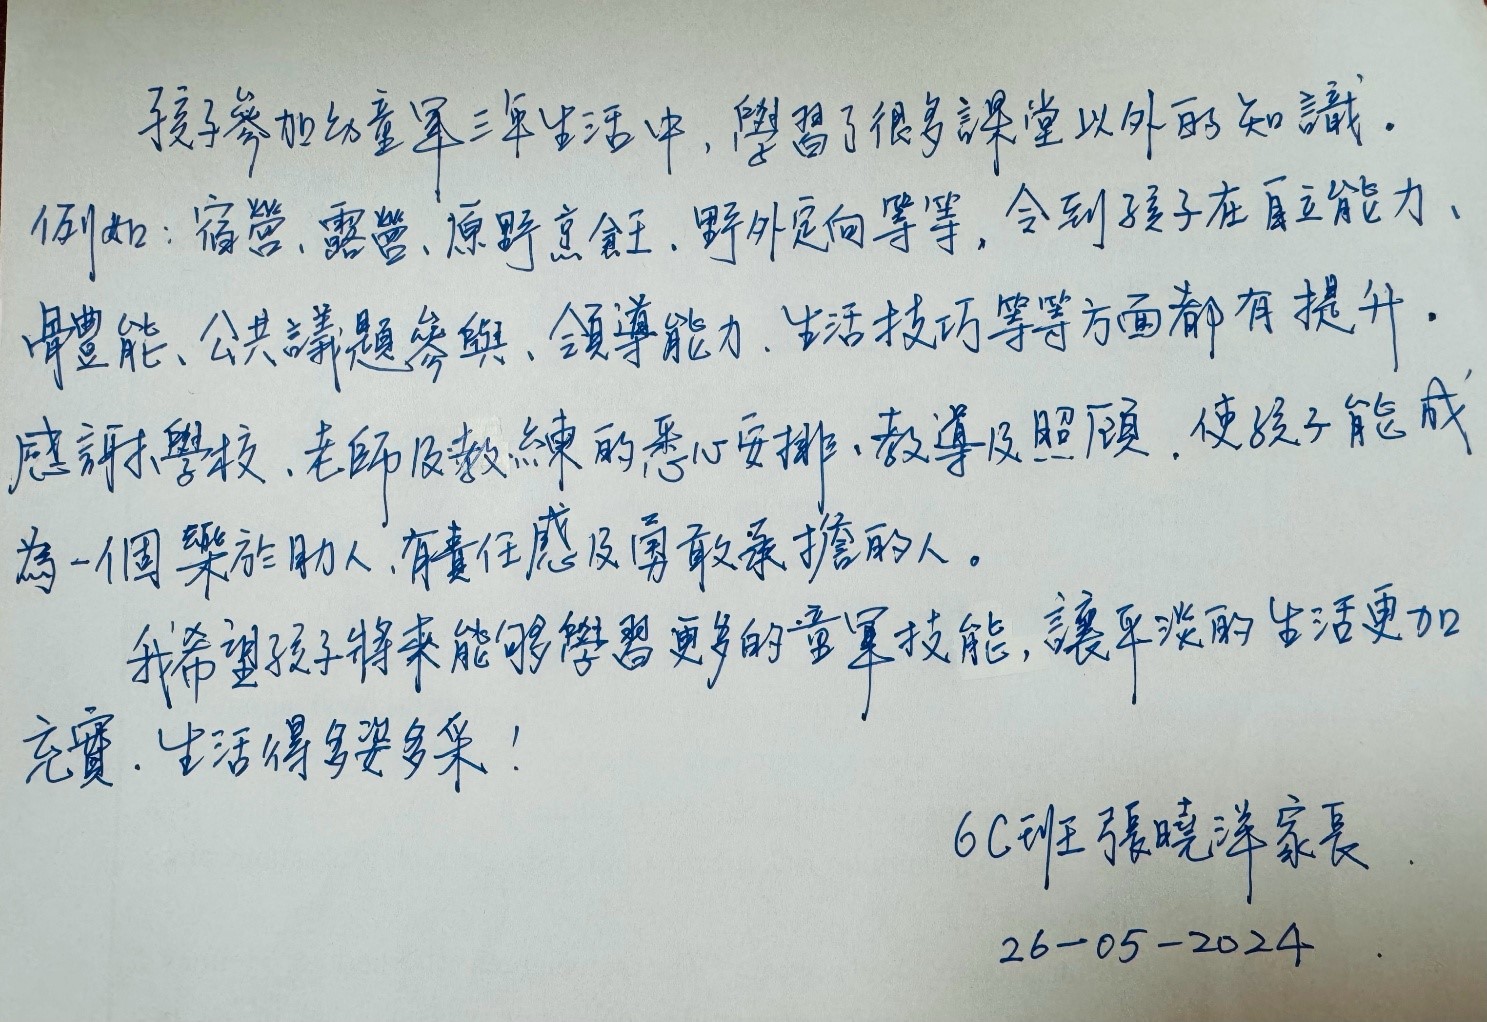 孩子參加幼童軍三年生活中，學習了很多課堂以外的知識．
例如：宿營、露營、原野烹飪、野外定向等等，令到孩子在自立能力、
體能、公共議題參與、領導能力、生活技巧等等方面都有提升．
感謝學校、老師及教練的悉心安排、教導及照顧，使孩子能成
為一個樂於助人、有責任感及勇敢承擔的人。
我希望孩子將來能够學習更多的童軍技能，讓平淡的生活更加
充實．生活得多姿多采！
6C班張曉洋家長
26-05-2024